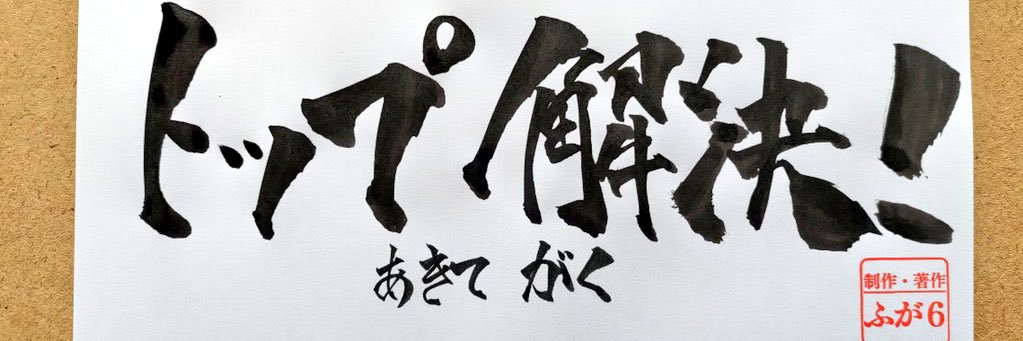 トップ解決!
あきて がく
制作・著作
ふが6